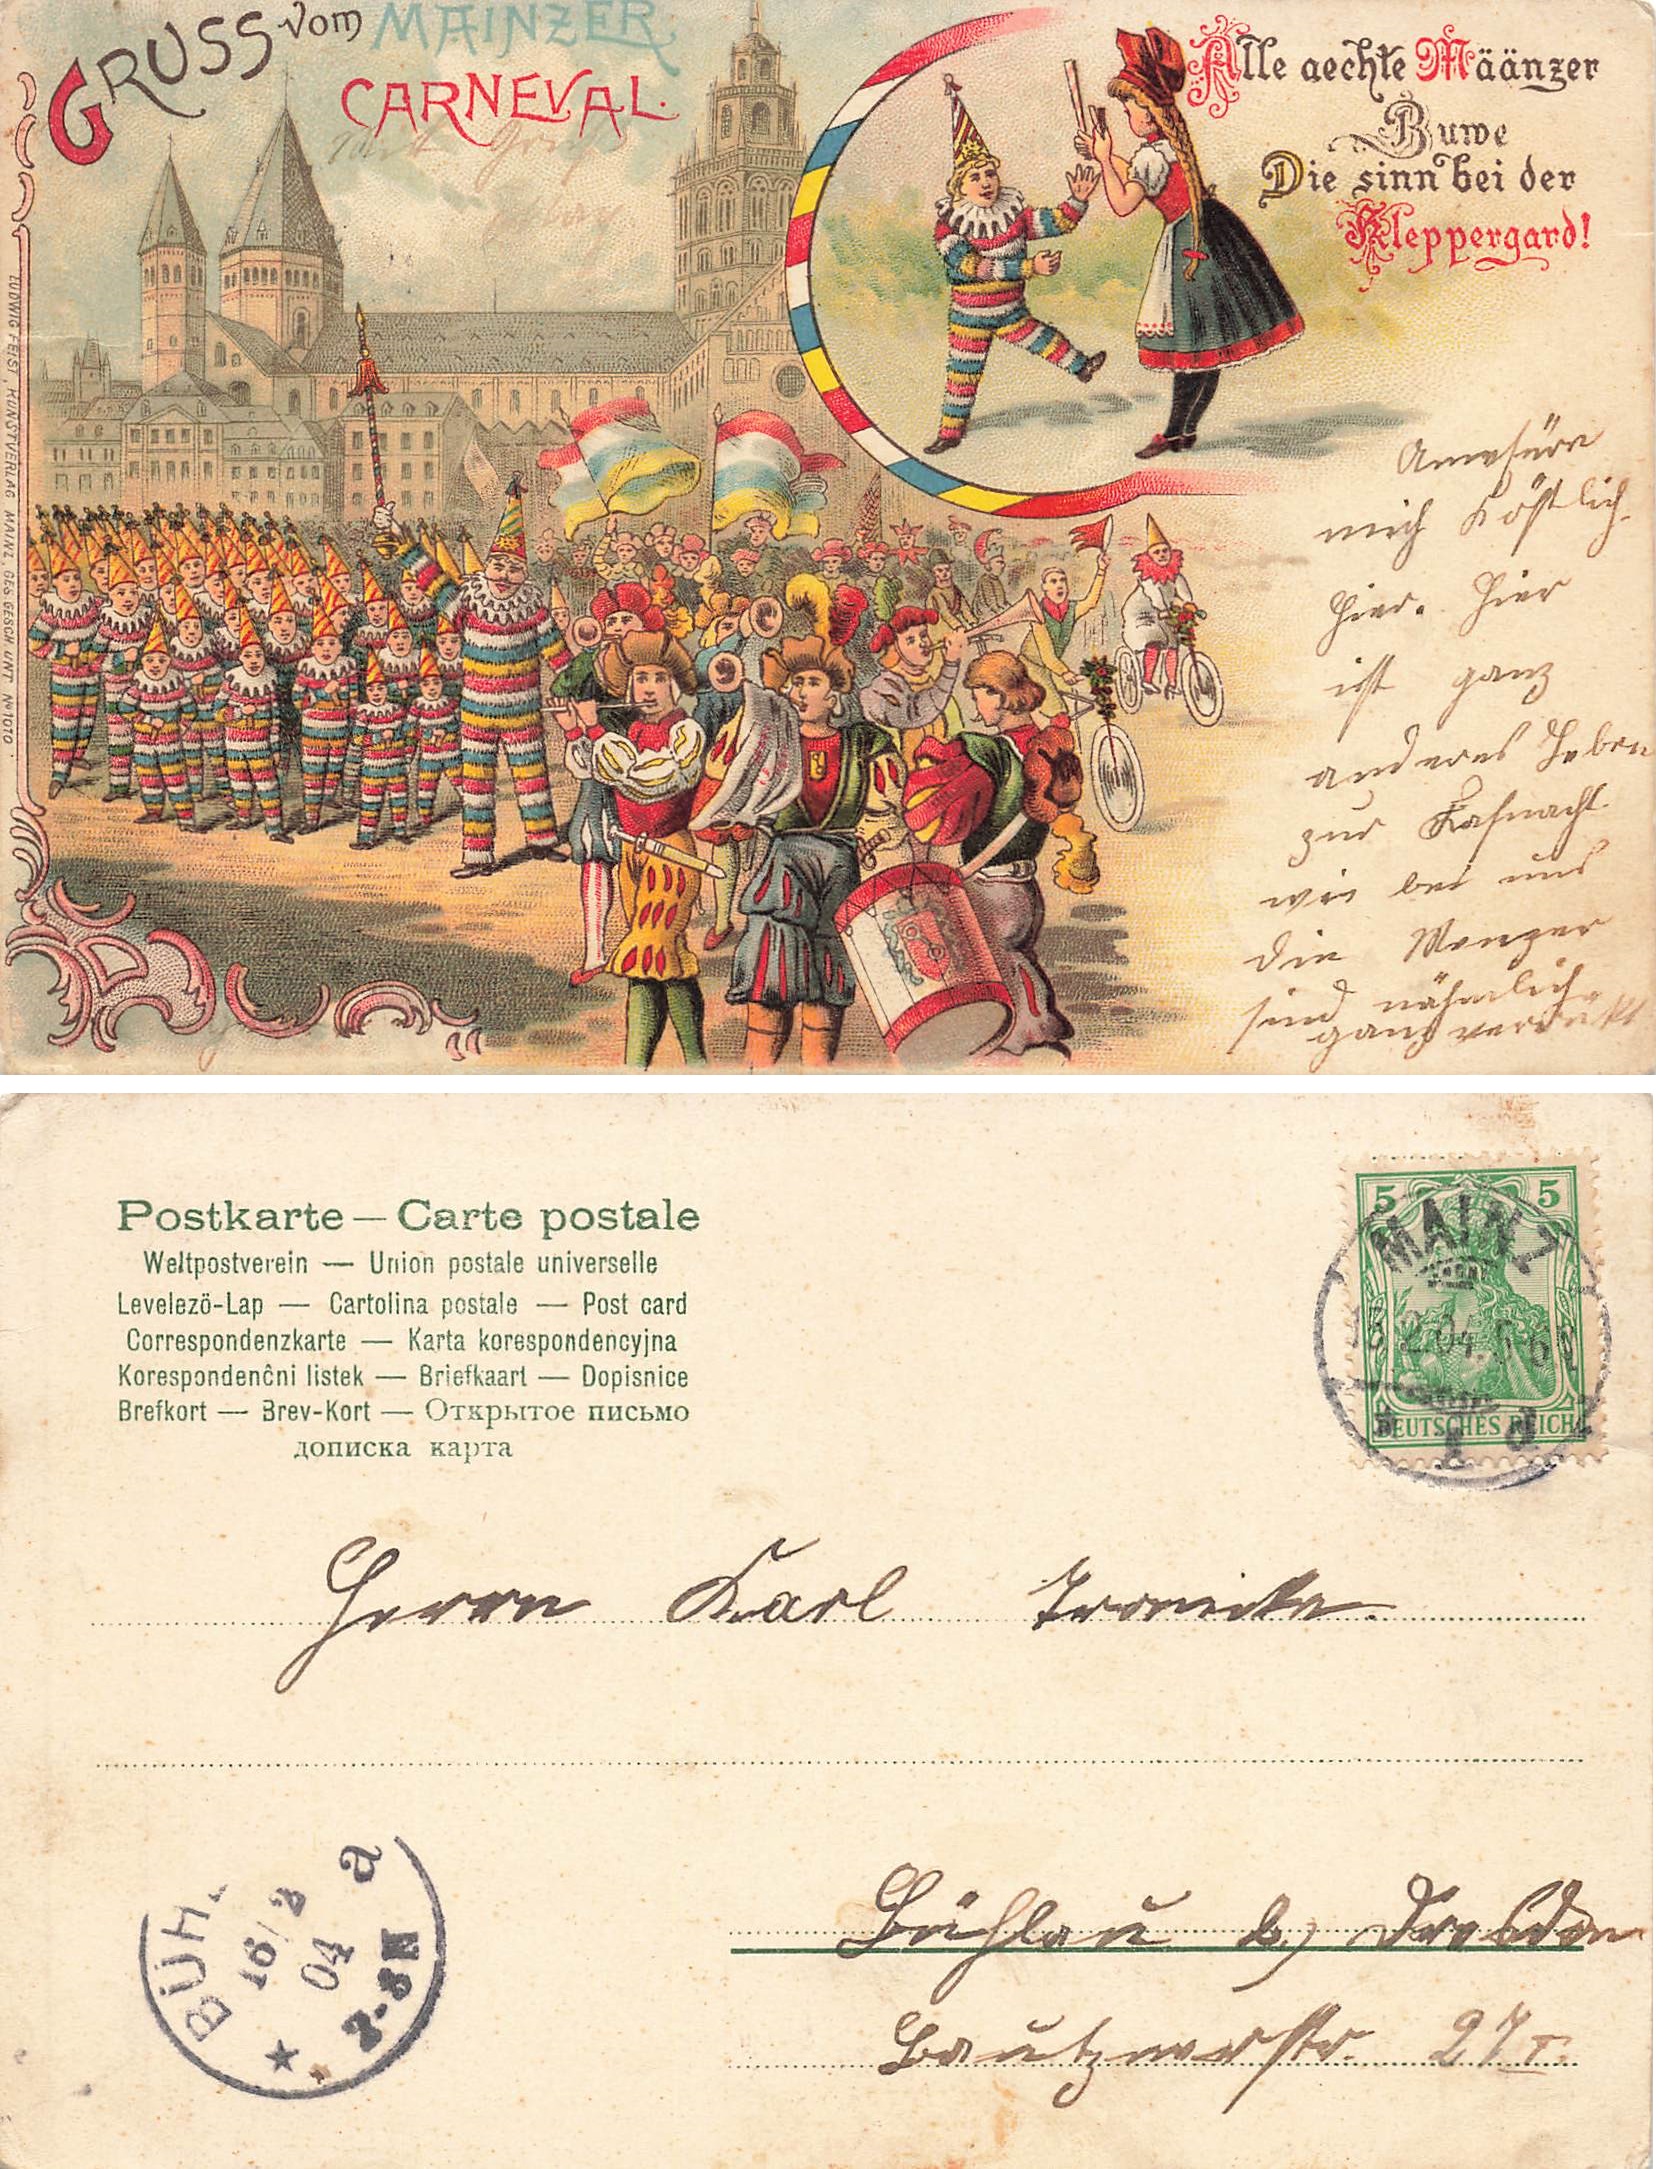 GRUSS vom MAINZER
CARNEVAL.
Alle aechte Määnzer
Buwe
Die sinn bei der
Kleppergard!
LUDWIG FEIST, KUNSTVERLAG MAINZ, GES. GESCH. UNT. № 1010.
mich köstlich
hier. Hier
ist ganz
anderes Leben
zur Fasnacht
wie bei uns
die Menzer
sind nähmlich
ganz verrükt
Postkarte — Carte postale
Weltpostverein — Union postale universelle
Levelező-Lap — Cartolina postale — Post card
Correspondenzkarte — Karta korespondencyjna
Korespondenčni listek — Briefkaart — Dopisnice
Brefkort — Brev-Kort — Открытое письмо
дописка карта
5 5
DEUTSCHES REICH
MAINZ
2.04.
1 d
Herrn Karl
BÜH
a
16/2
04
7-8N
Bühlau b/ Dresden
Bautznerstr. 27 I.